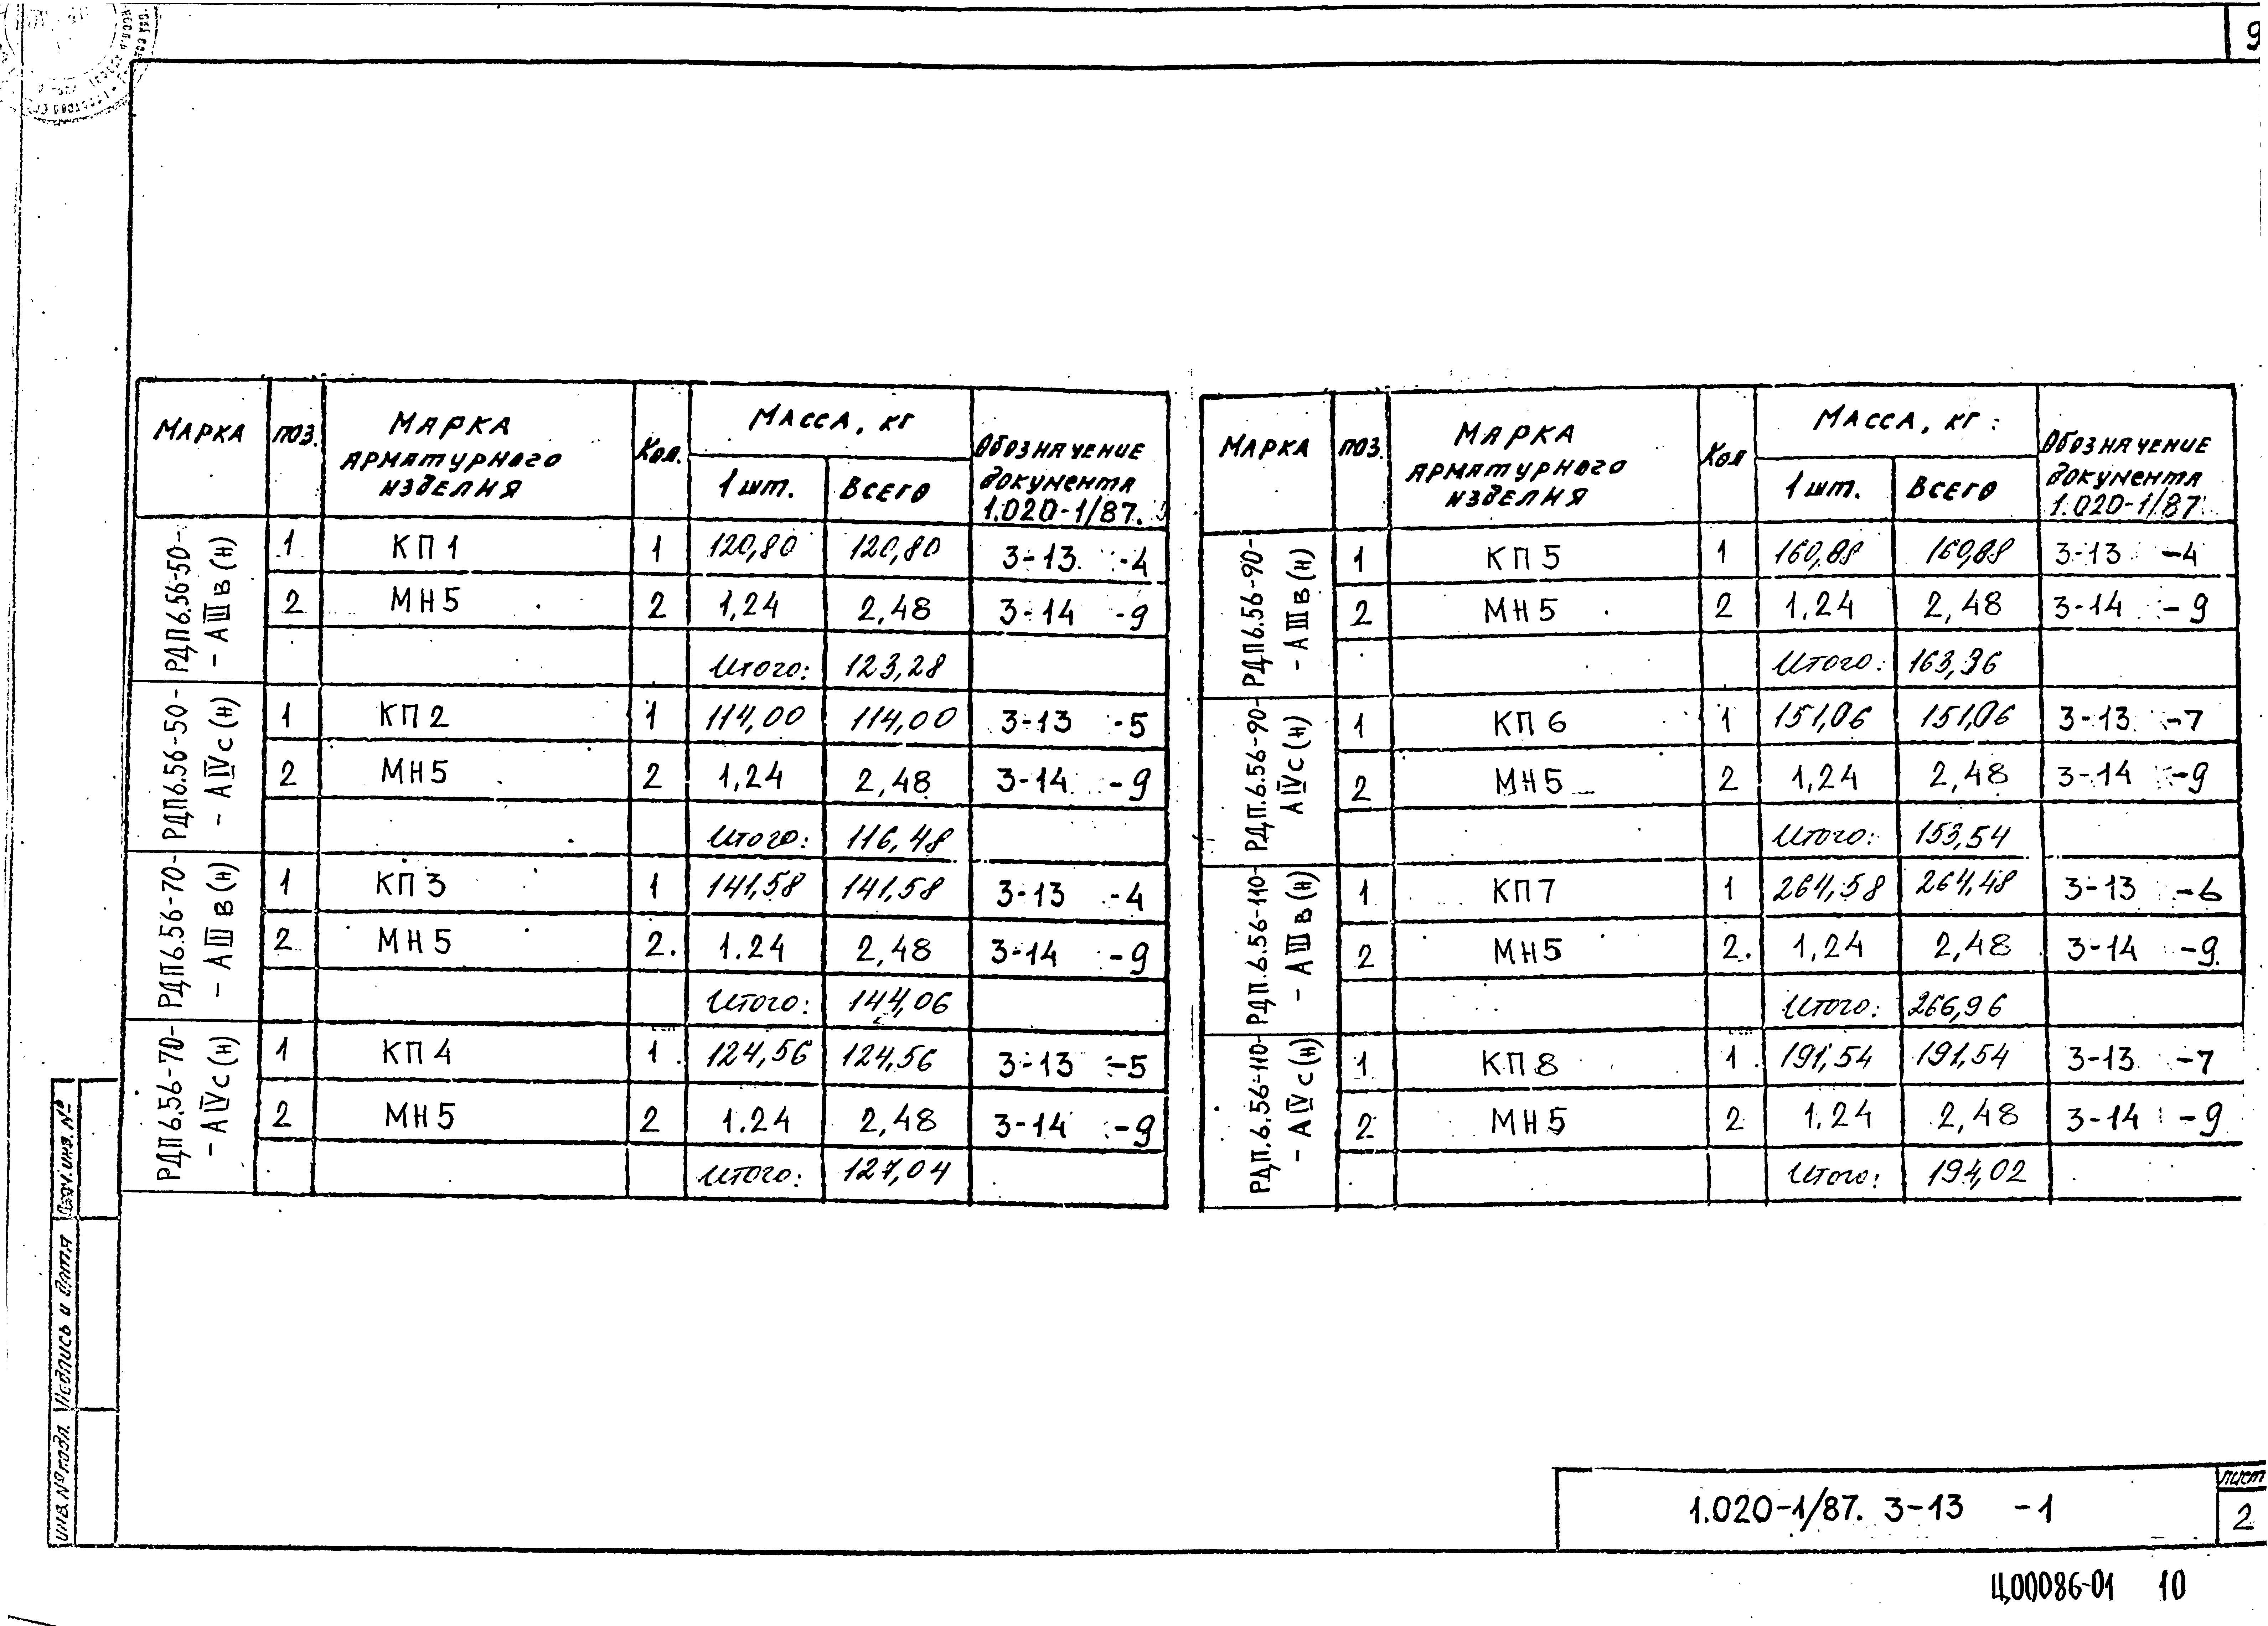 9
МАРКА ПОЗ. МАРКА АРМАТУРНОГО ИЗДЕЛИЯ Кол. МАССА, КГ ОБОЗНАЧЕНИЕ ДОКУМЕНТА 1.020-1/87.
1 шт. ВСЕГО
РДП6.56-50-
- АIIIв(н)
1 КП1 1 120,80 120,80 3-13 -4
2 МН5 2 1,24 2,48 3-14 -9
Итого: 123,28
РДП6.56-50-
- АIVс(н)
1 КП2 1 114,00 114,00 3-13 -5
2 МН5 2 1,24 2,48 3-14 -9
Итого: 116,48
РДП6.56-70-
- АIIIв(н)
1 КП3 1 141,58 141,58 3-13 -4
2 МН5 2. 1.24 2,48 3-14 -9
Итого: 144,06
РДП6.56-70-
- АIVс(н)
1 КП4 1 124,56 124,56 3-13 -5
2 МН5 2 1.24 2,48 3-14 -9
Итого: 127,04
МАРКА ПОЗ. МАРКА АРМАТУРНОГО ИЗДЕЛИЯ Кол МАССА, КГ ОБОЗНАЧЕНИЕ ДОКУМЕНТА 1.020-1/87
1 шт. ВСЕГО
РДП.6.56-90-
- АIIIв(н)
1 КП5 1 160,88 160,88 3-13 -4
2 МН5 2 1,24 2,48 3-14 -9
Итого: 163,36
РДП.6.56-90-
АIVс(н)
1 КП6 1 151,06 151,06 3-13 -7
2 МН5 2 1,24 2,48 3-14 -9
Итого: 153,54
РДП.6.56-110-
- АIIIв(н)
1 КП7 1 264,58 264,48 3-13 -6
2 МН5 2. 1,24 2,48 3-14 -9
Итого: 266,96
РДП.6.56-110-
- АIVс(н)
1 КП8 1 191,54 191,54 3-13 -7
2 МН5 2 1.24 2,48 3-14 -9
Итого: 194,02
Взам.инв. №
Подпись и дата
Инв. № подл.
1.020-1/87. 3-13 -1
лист
2
Ц00086-01 10